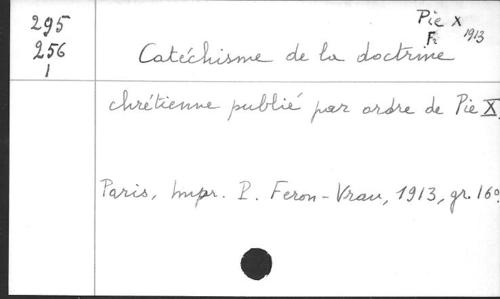 295
256
1
Pie X
F. 1913
Catéchisme de la doctrine
chrétienne publié par ordre de Pie X.
Paris, Impr. P. Feron-Vrau, 1913, gr. 16°